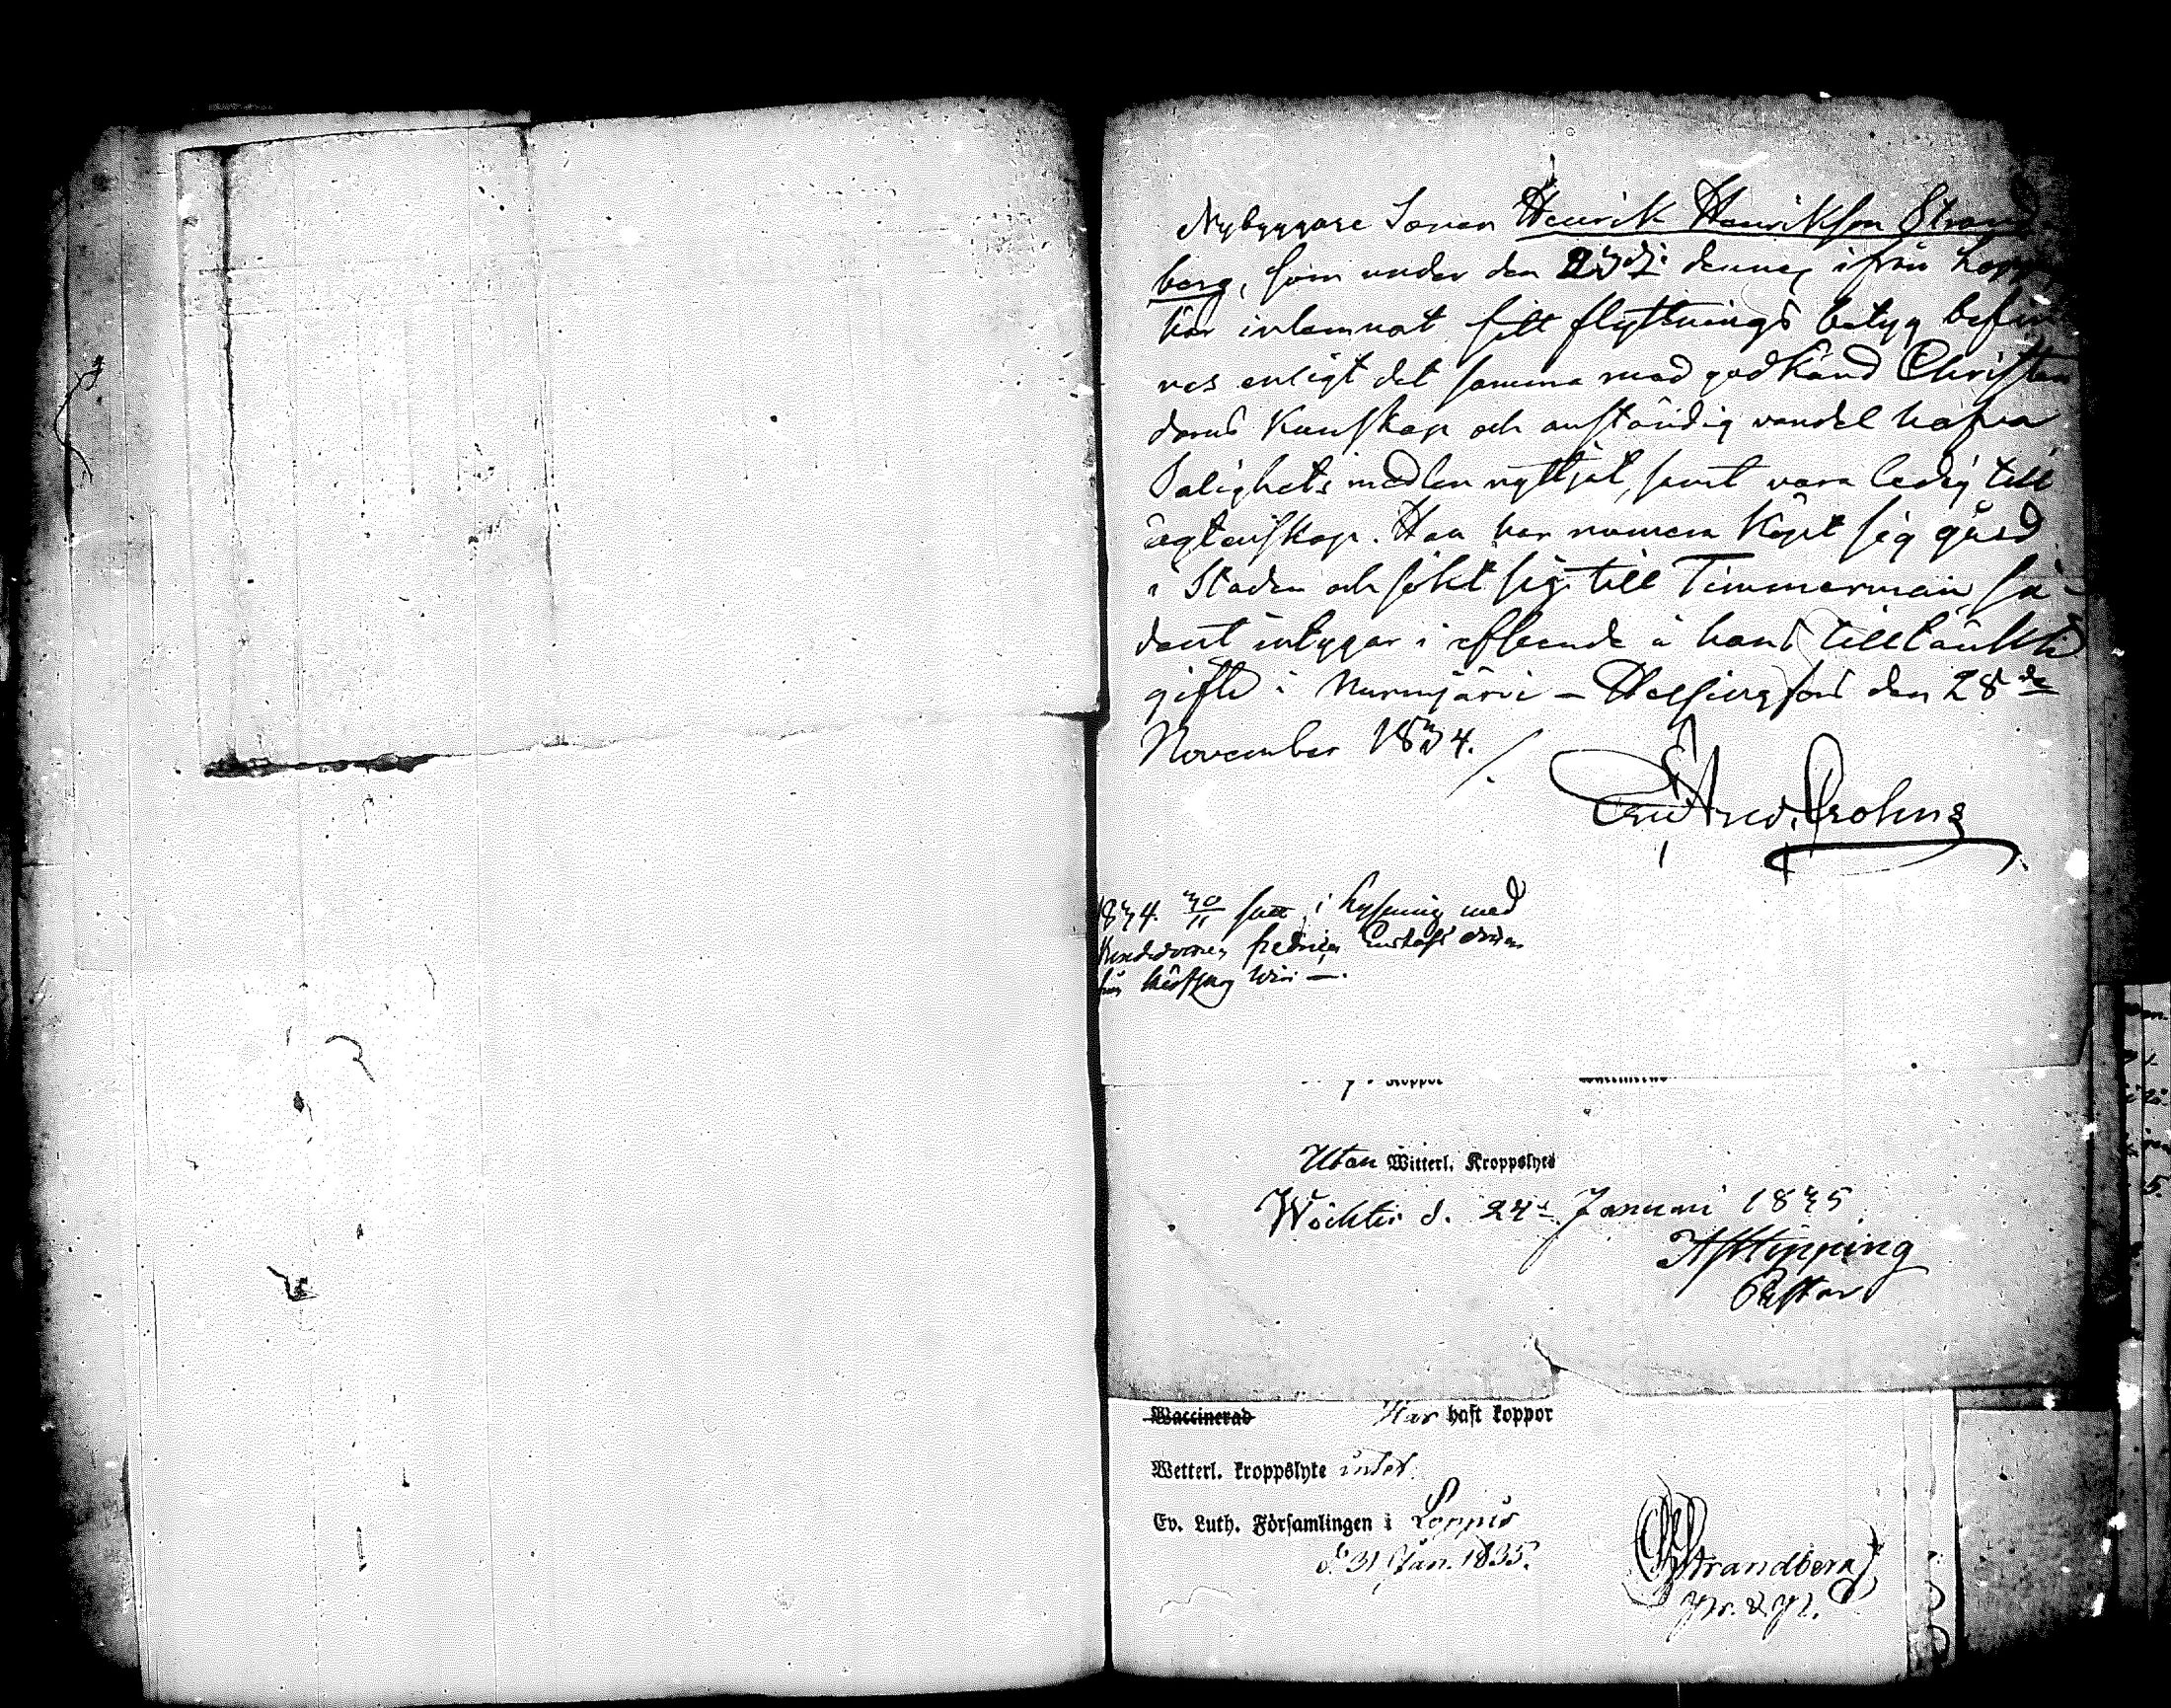 Nybyggare Sonen Henrik Henrikson Strand
berg, som under den 23de dennes ifrån Lopp
har inlemnat sitt flyttnings betyg befin
nes enligt det samma med godkänd Christen
doms kunskap och anständig vandel hafva
Salighets medlen nyttjat, samt vara ledig till
ägtenskap. Han har numera köpt sig gård
i Staden och sökt sig till Timmerman, så-
dant intygar i afseende å hans tilltänkta
gifte i Nurmijärvi – Helsingfors den 28de
November 1834.
Crohns
1834 30/11 i Lysning med
Utan Witterl. Kroppslyte
Wichtis d. 24de Januari 1835
Pastor
Waccinerad Har haft koppor
Wetterl. kroppslyte intet
Ev. Luth. Församlingen i Loppis
d. 31 Jan. 1835.
Strandberg